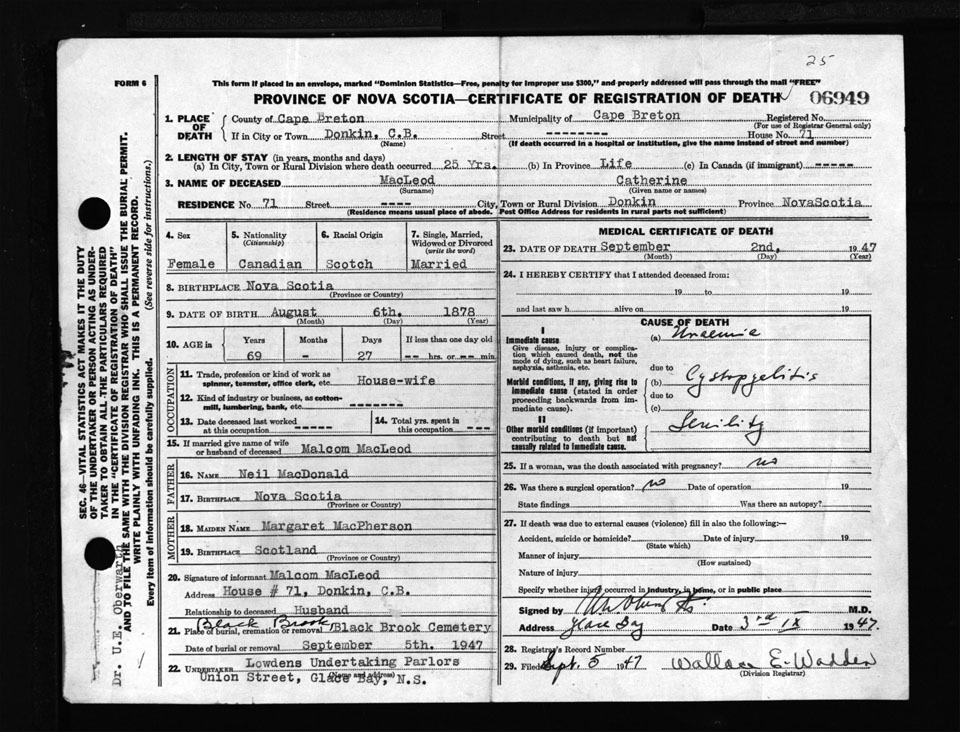 25
FORM 6
This form if placed in an envelope, marked "Dominion Statistics—Free, penalty for improper use $300," and properly addressed will pass through the mail "FREE"
PROVINCE OF NOVA SCOTIA—CERTIFICATE OF REGISTRATION OF DEATH
06949
1. PLACE OF DEATH
County of Cape Breton Municipality of Cape Breton Registered No.
(For use of Registrar General only)
If in City or Town Donkin, C.B. Street --------- House No. 71
(Name) (If death occurred in a hospital or institution, give the name instead of street and number)
2. LENGTH OF STAY (in years, months and days)
(a) In City, Town or Rural Division where death occurred 25 Yrs. (b) In Province Life (c) In Canada (if immigrant) -----
3. NAME OF DECEASED MacLeod Catherine
(Surname) (Given name or names)
RESIDENCE No 71 Street ---- City, Town or Rural Division Donkin Province NovaScotia
(Residence means usual place of abode. Post Office Address for residents in rural parts not sufficient)
4. Sex
Female
5. Nationality
(Citizenship)
Canadian
6. Racial Origin
Scotch
7. Single, Married, Widowed or Divorced
(write the word)
Married
8. BIRTHPLACE Nova Scotia
(Province or Country)
9. DATE OF BIRTH August 6th. 1878
(Month) (Day) (Year)
10. AGE in Years Months Days If less than one day old
69 - 27 -- hrs. or -- min.
OCCUPATION
11. Trade, profession or kind of work as spinner, teamster, office clerk, etc. House-wife
12. Kind of industry or business, as cotton-mill, lumbering, bank, etc. --------
13. Date deceased last worked at this occupation -----
14. Total yrs. spent in this occupation ---
15. If married give name of wife or husband of deceased Malcom MacLeod
FATHER
16. NAME Neil MacDonald
17. BIRTHPLACE Nova Scotia
MOTHER
18. MAIDEN NAME Margaret MacPherson
19. BIRTHPLACE Scotland
(Province or Country)
20. Signature of informant Malcom MacLeod
Address House # 71, Donkin, C.B.
Relationship to deceased Husband
Black Brook
21. Place of burial, cremation or removal Black Brook Cemetery
Date of burial or removal September 5th. 1947
22. UNDERTAKER Lowdens Undertaking Parlors
(Name and address)
Union Street, Glace Bay, N.S.
MEDICAL CERTIFICATE OF DEATH
23. DATE OF DEATH September 2nd, 1947
(Month) (Day) (Year)
24. I HEREBY CERTIFY that I attended deceased from:
19 to 19
and last saw h alive on 19
CAUSE OF DEATH
I
Immediate cause.
Give disease, injury or complication which caused death, not the mode of dying, such as heart failure, asphyxia, asthenia, etc.
(a) Uraemia
due to
Morbid conditions, if any, giving rise to immediate cause (stated in order proceeding backwards from immediate cause).
(b) Cystopyelitis
due to
(c)
II
Other morbid conditions (if important) contributing to death but not causally related to immediate cause.
Senility
25. If a woman, was the death associated with pregnancy? no
26. Was there a surgical operation? no Date of operation 19
State findings Was there an autopsy?
27. If death was due to external causes (violence) fill in also the following:—
Accident, suicide or homicide? Date of injury 19
(State which)
Manner of injury
(How sustained)
Nature of injury
Specify whether injury occurred in industry, in home, or in public place
Signed by M.D.
Address Glace Bay Date 3rd IX 1947.
28. Registrar's Record Number
29. Filed Sept. 5 1947 Wallace E. Wadden
(Division Registrar)
SEC. 46- VITAL STATISTICS ACT MAKES IT THE DUTY
OF THE UNDERTAKER OR PERSON ACTING AS UNDER-
TAKER TO OBTAIN ALL THE PARTICULARS REQUIRED
IN THE "CERTIFICATE OF REGISTRATION OF DEATH"
AND TO FILE THE SAME WITH THE DIVISION REGISTRAR WHO SHALL ISSUE THE BURIAL PERMIT.
WRITE PLAINLY WITH UNFADING INK. THIS IS A PERMANENT RECORD.
Every item of information should be carefully supplied. (See reverse side for instructions.)
Dr. U.E. Oberwarth